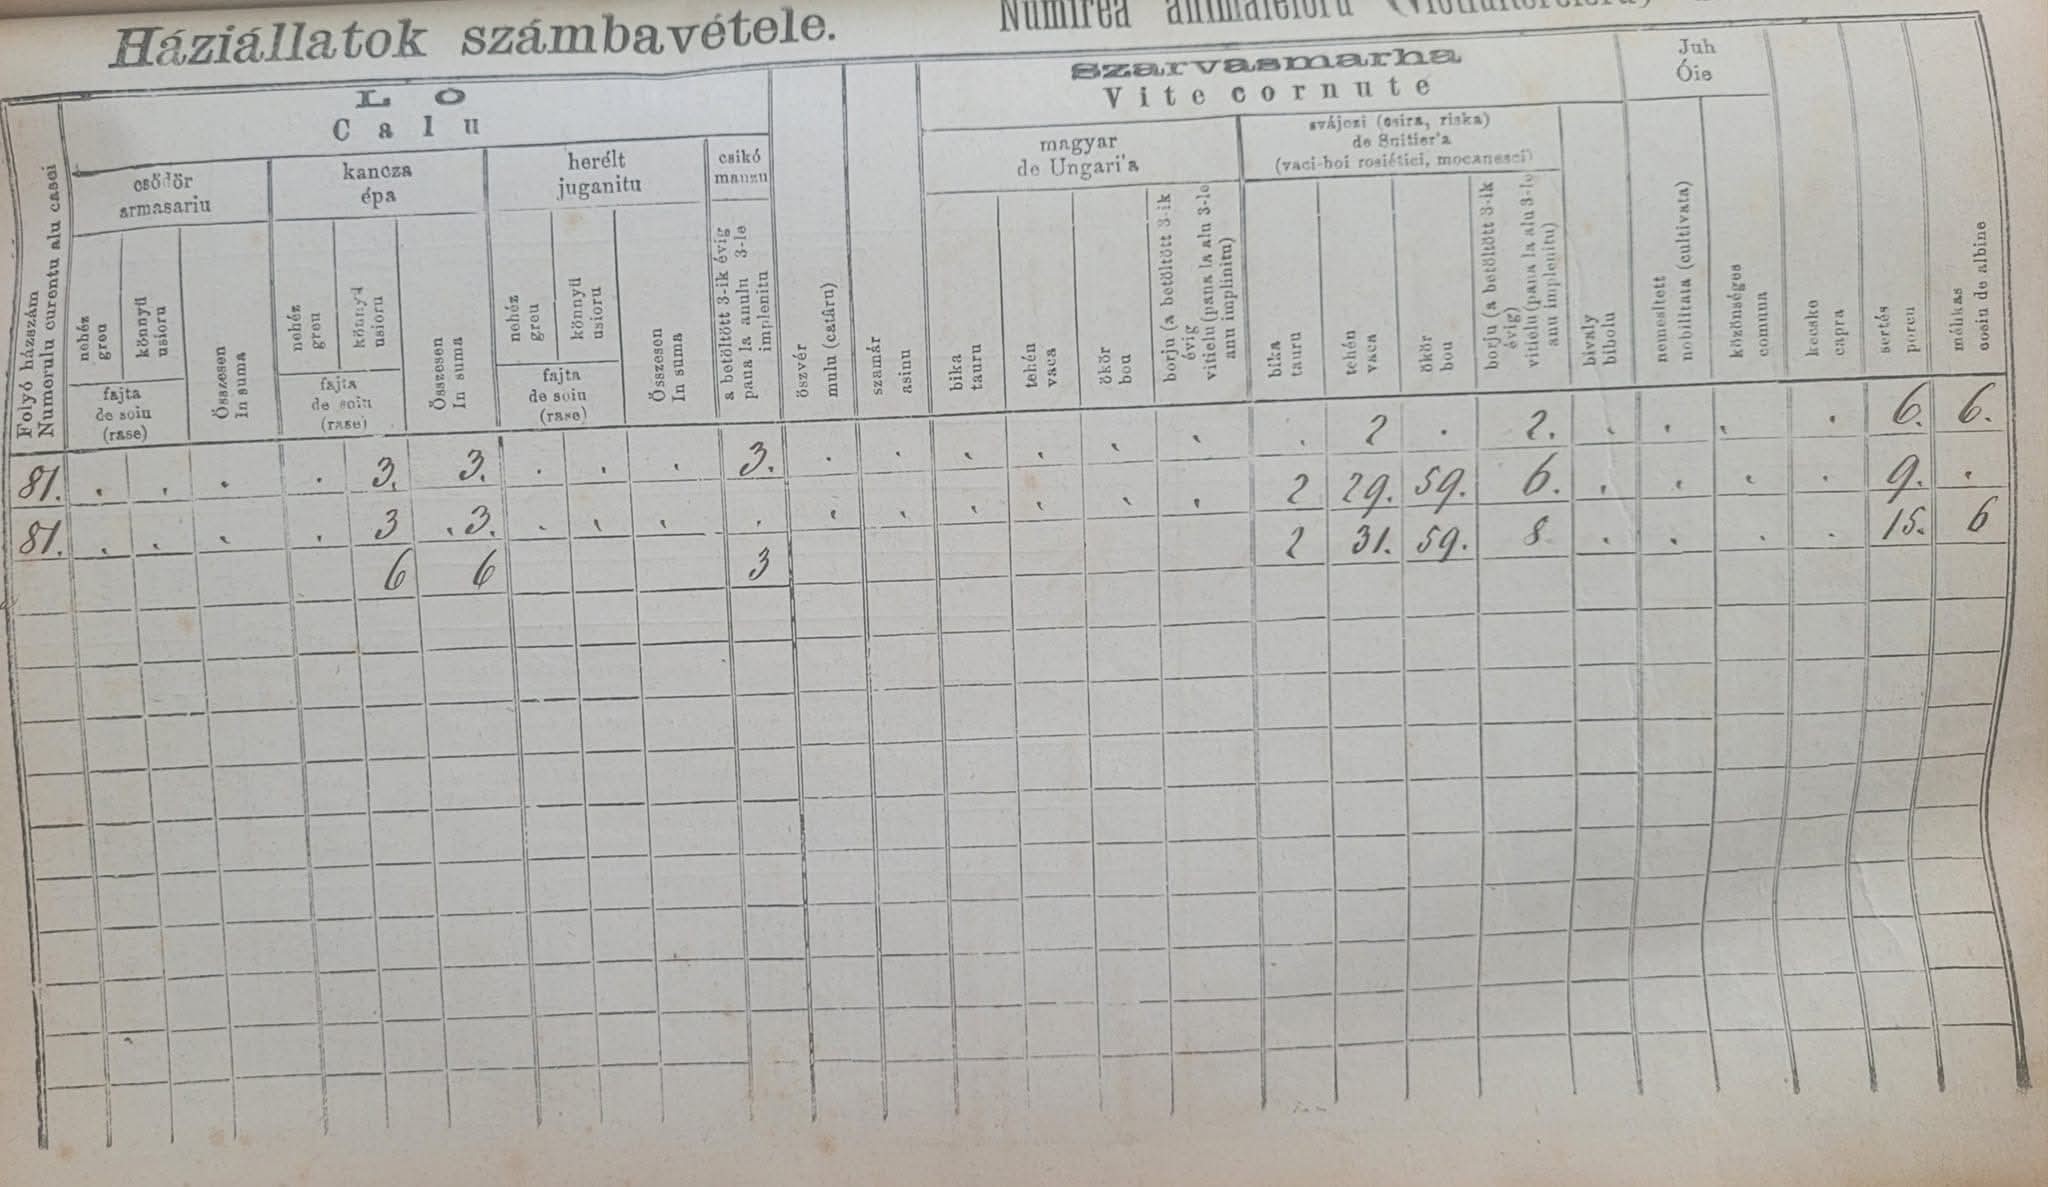 Háziállatok számbavétele.
Numirea animaleloru
LÓ
Calu
Szarvasmarha
Vite cornute
Juh
Óie
Folyó házszám
Numerulu curentu alu casei
csődör
armasariu
kancza
épa
herélt
juganitu
csikó
manzu
magyar
de Ungari'a
svájczi (csira, riska)
de Snitier'a
(vaci-boi rosiétici, mocanesci)
nehéz
greu
könnyű
usioru
Összesen
In suma
nehéz
greu
könnyű
usioru
Összesen
In suma
nehéz
greu
könnyű
usioru
Összesen
In suma
a betöltött 3-ik évig
pana la anulu 3-le
implenitu
öszvér
mulu (catâru)
szamár
asinu
bika
tauru
tehén
vaca
ökör
bou
borju (a betöltött 3-ik
évig
vitielu (pana la alu 3-le
anu implinitu)
bika
tauru
tehén
vaca
ökör
bou
borju (a betöltött 3-ik
évig)
vitielu (pana la alu 3-le
anu implenitu)
bivaly
bibolu
nemesitett
nobilitata (cultivata)
közönséges
comuna
kecske
capra
sertés
porcu
méhkas
cosiu de albine
fajta
de soiu
(rase)
fajta
de soiu
(rase)
fajta
de soiu
(rase)
81. . . . . 3. 3. . . . 3. . . . . . . . 2 . 2. . . . . 6. 6.
81. . . . . 3 . 3. . . . . . . . . . . 2 29. 59. 6. . . . . 9. .
6 6 3 2 31. 59. 8 . . . . 15. 6